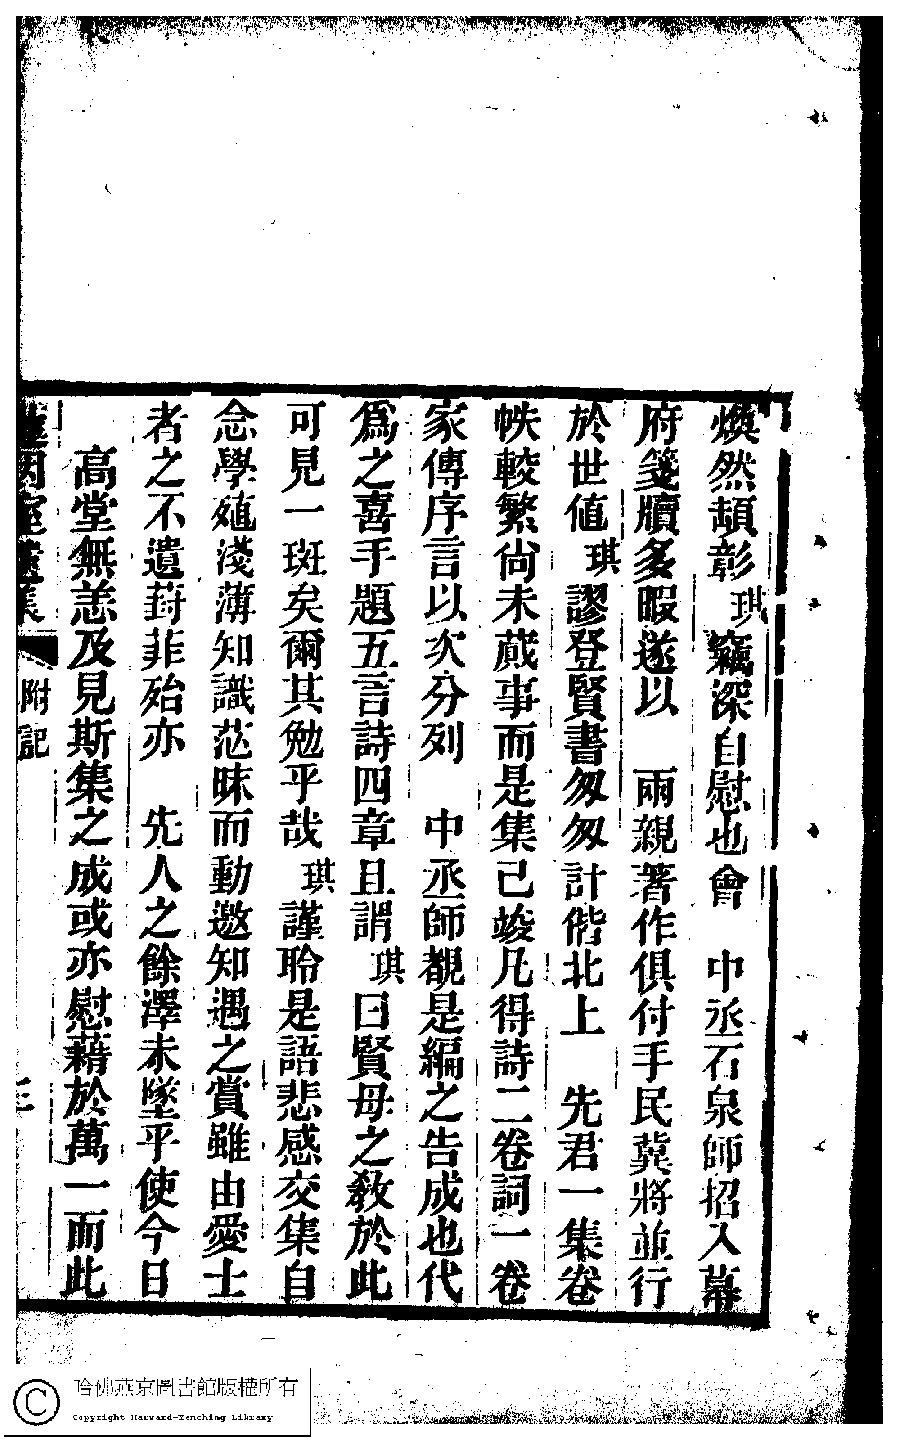 煥然頡彰琪竊深自慰也會　中丞石泉師招入幕
府箋牘多暇遂以　兩親著作俱付手民冀將並行
於世値琪謬登賢書匆匆計偕北上　先君一集卷
帙較繁尙未蕆事而是集已竣凡得詩二卷詞一卷
家傳序言以次分列　中丞師覩是編之告成也代
爲之喜手題五言詩四章且謂琪曰賢母之敎於此
可見一斑矣爾其勉乎哉琪謹聆是語悲感交集自
念學殖淺薄知識茫昧而動邀知遇之賞雖由愛士
者之不遺葑菲殆亦　先人之餘澤未墜乎使今日
高堂無恙及見斯集之成或亦慰藉於萬一而此
室遺集
附記
三
哈佛燕京圖書館版權所有
Copyright Harvard-Yenching Library